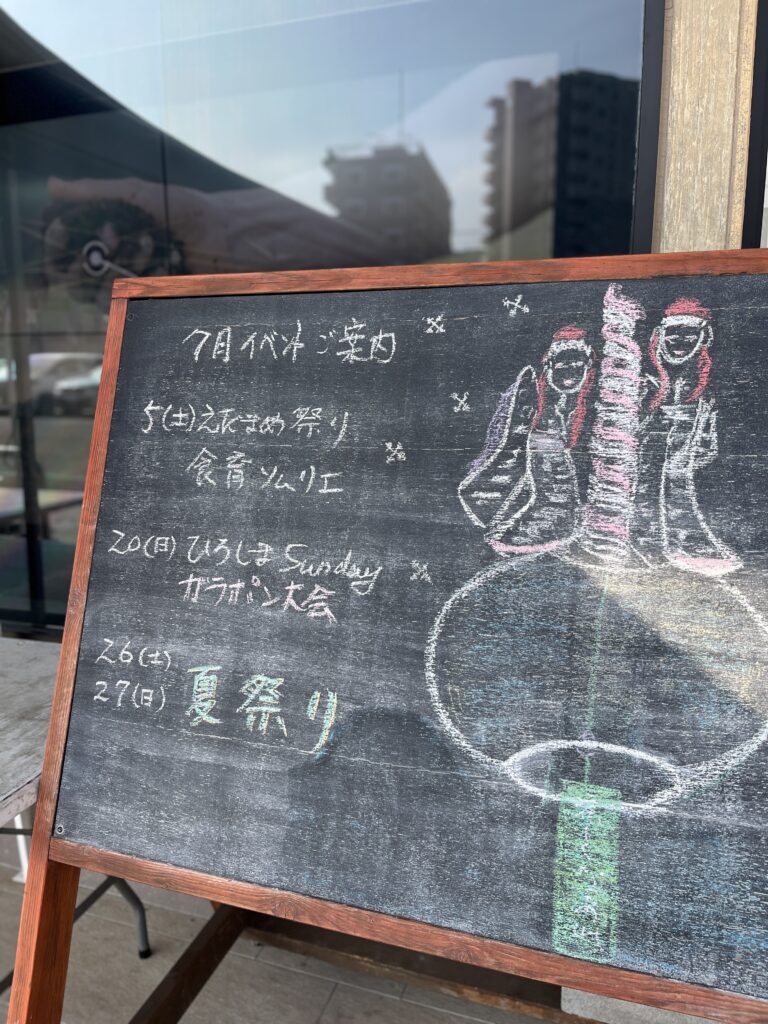 7月イベントご案内
5(土)えだまめ祭り
食育ソムリエ
20(日)ひろしまSunday
ガラポン大会
26(土)
27(日)
夏祭り